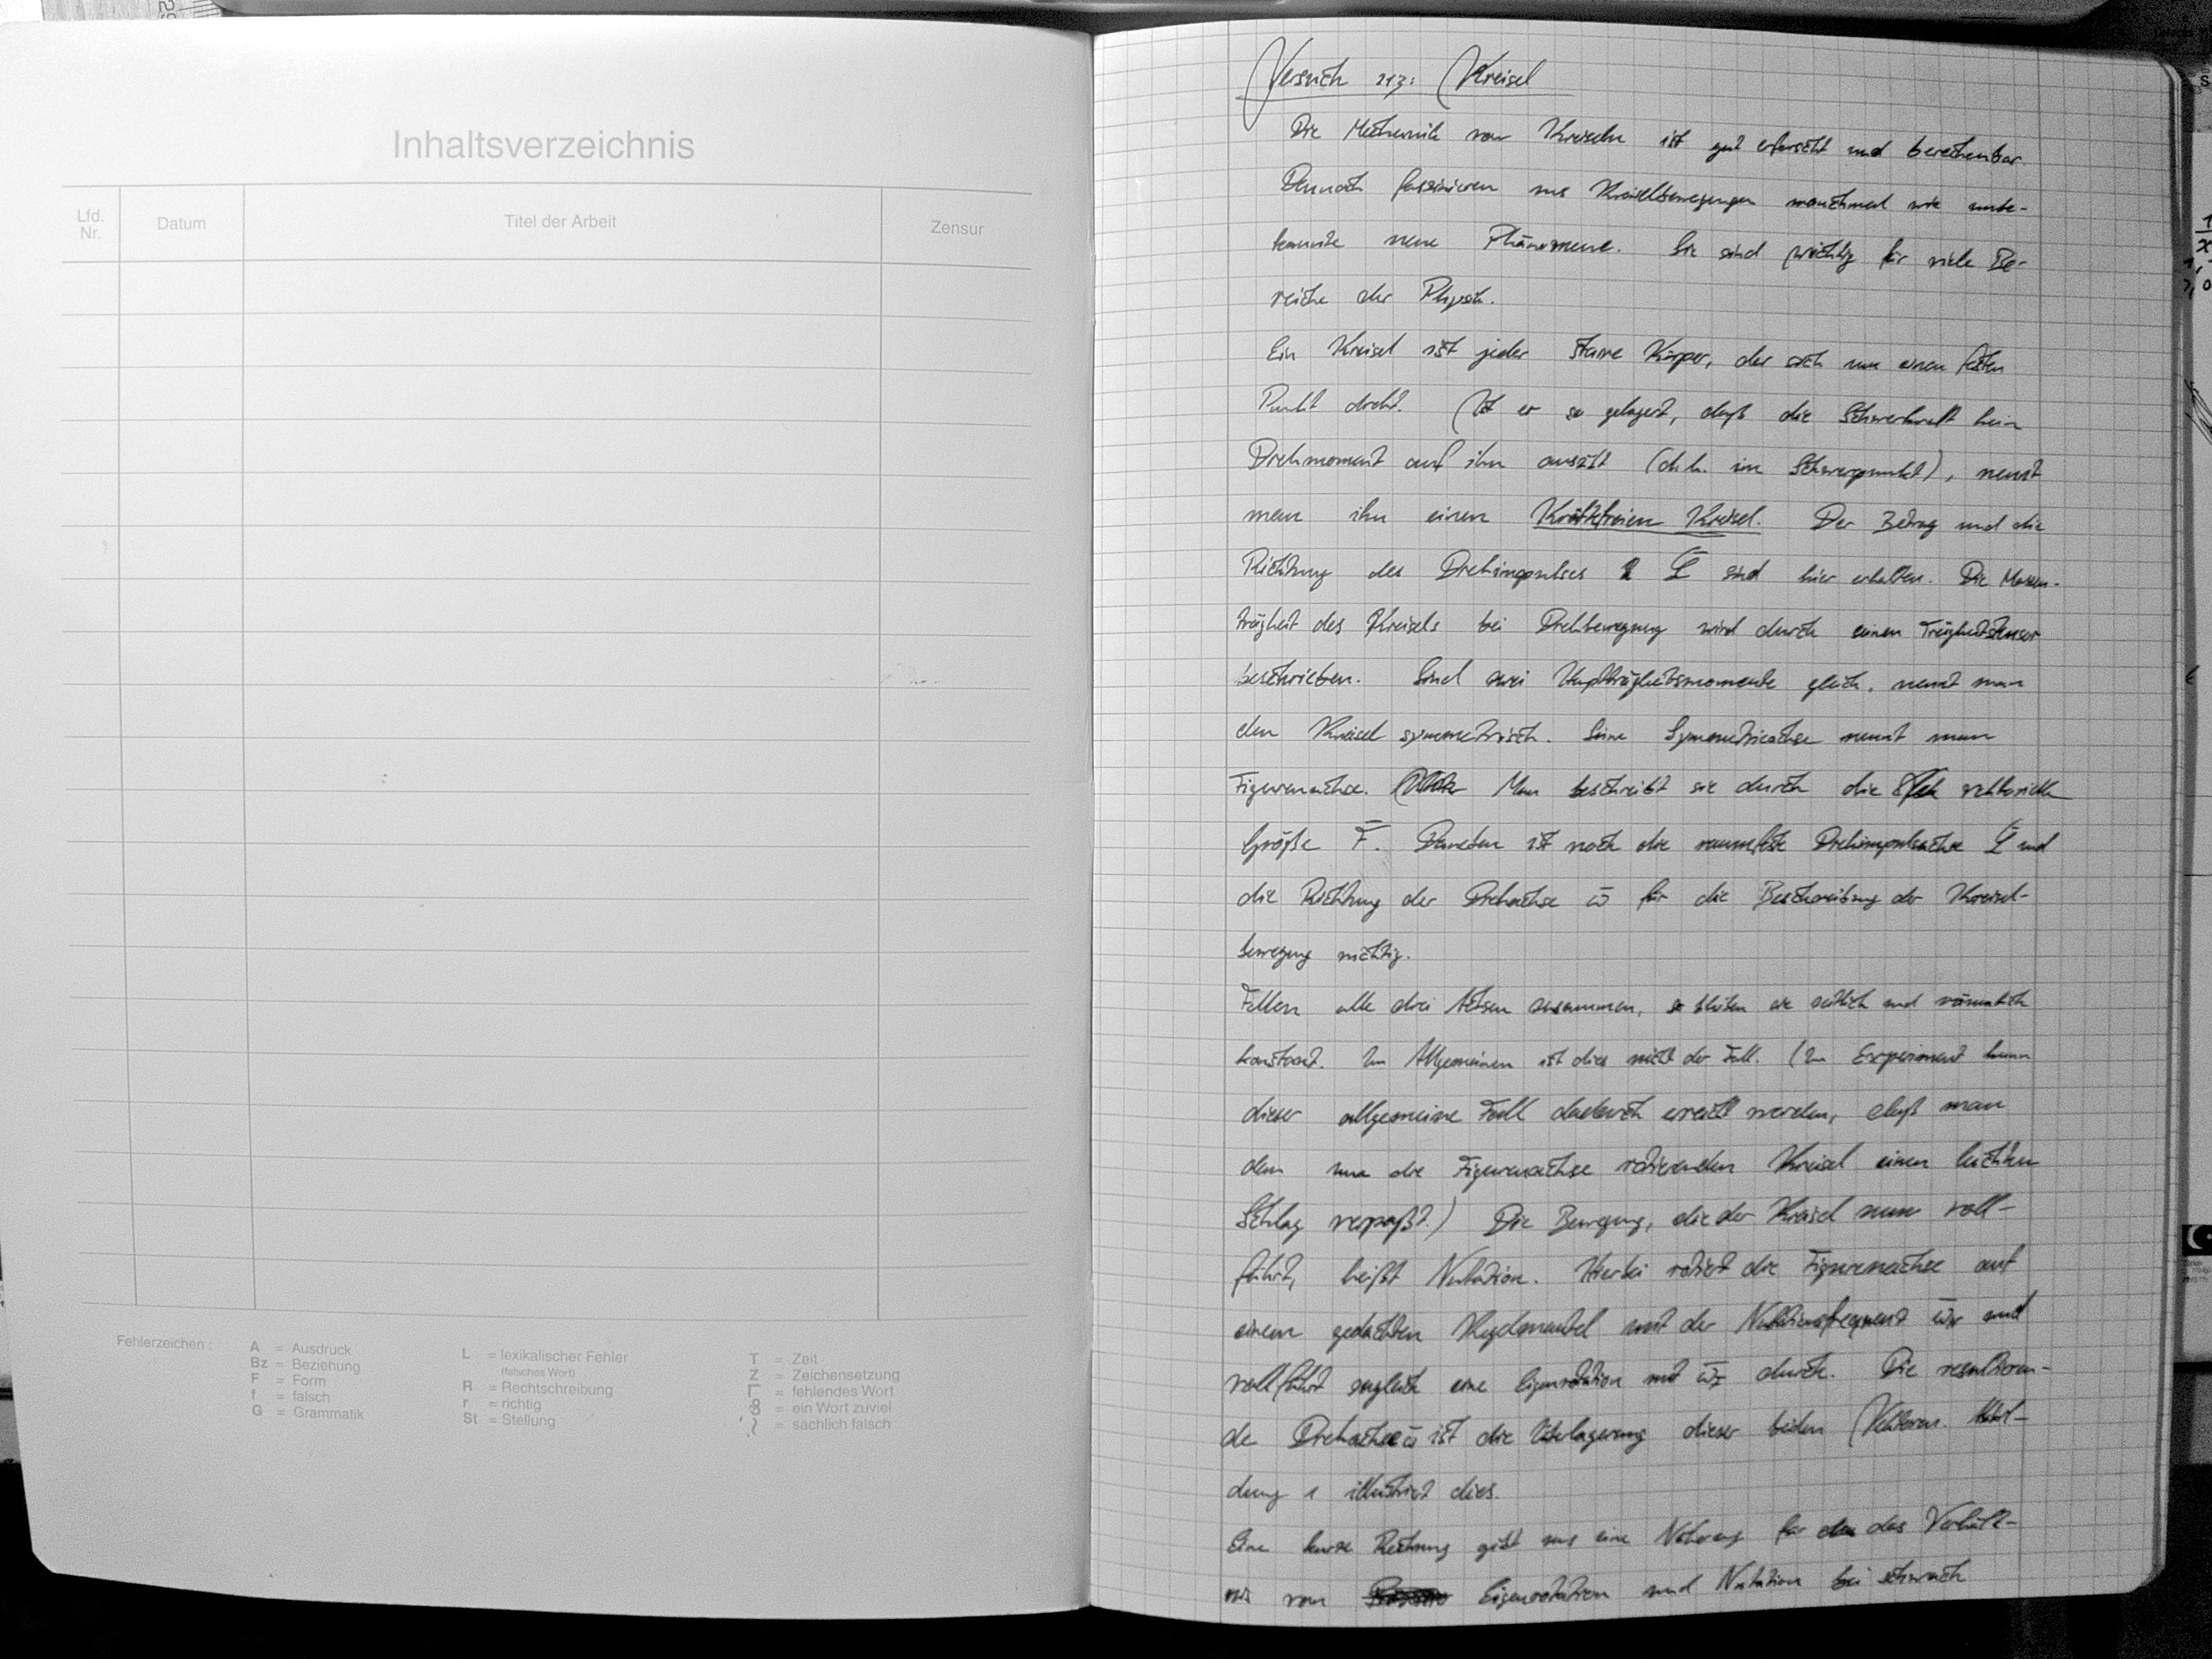 Inhaltsverzeichnis
Lfd. Nr.
Datum
Titel der Arbeit
Zensur
Fehlerzeichen :
A = Ausdruck
Bz = Beziehung
F = Form
f = falsch
G = Grammatik
L = lexikalischer Fehler
(falsches Wort)
R = Rechtschreibung
r = richtig
St = Stellung
T = Zeit
Z = Zeichensetzung
Γ = fehlendes Wort
= ein Wort zuviel
= sachlich falsch
Versuch 213: Kreisel
Die Mechanik von Kreiseln ist gut erforscht und berechenbar.
Dennoch faszinieren uns Kreiselbewegungen manchmal wie unbe-
kannte neue Phänomene. Sie sind wichtig für viele Be-
reiche der Physik.
Ein Kreisel ist jeder starre Körper, der sich um einen festen
Punkt dreht. Ist er so gelagert, daß die Schwerkraft kein
Drehmoment auf ihn ausübt (d.h. im Schwerpunkt), nennt
man ihn einen Kräftefreien Kreisel. Der Betrag und die
Richtung des Drehimpulses L sind hier erhalten. Die Massen-
trägheit des Kreisels bei Drehbewegung wird durch einen Trägheitstensor
beschrieben. Sind zwei Hauptträgheitsmomente gleich, nennt man
den Kreisel symmetrisch. Seine Symmetrieachse nennt man
Figurenachse. Man beschreibt sie durch die vektorielle
Größe F. Daneben ist noch die raumfeste Drehimpulsachse L und
die Richtung der Drehachse ω für die Beschreibung der Kreisel-
bewegung wichtig.
Fallen alle drei Achsen zusammen, so bleiben sie zeitlich und räumlich
konstant. Im Allgemeinen ist dies nicht der Fall. (Im Experiment kann
dieser allgemeine Fall dadurch erreicht werden, daß man
dem um die Figurenachse rotierenden Kreisel einen leichten
Schlag verpaßt.) Die Bewegung, die der Kreisel nun voll-
führt, heißt Nutation. Hierbei rotiert die Figurenachse auf
einem gedachten Kegelmantel mit der Nutationsfrequenz ωN und
vollführt zugleich eine Eigenrotation mit ωF durch. Die resultieren-
de Drehachse ω ist die Überlagerung dieser beiden Vektoren. Abbil-
dung 1 illustriert dies.
Eine kurze Rechnung gibt uns eine Näherung für das Verhält-
nis von Eigenrotation und Nutation bei schwach